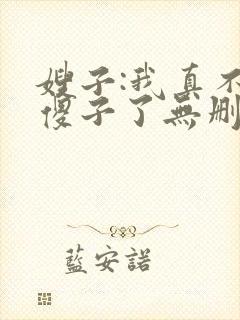 嫂子:我真不
傻子了無刪
藍安諾